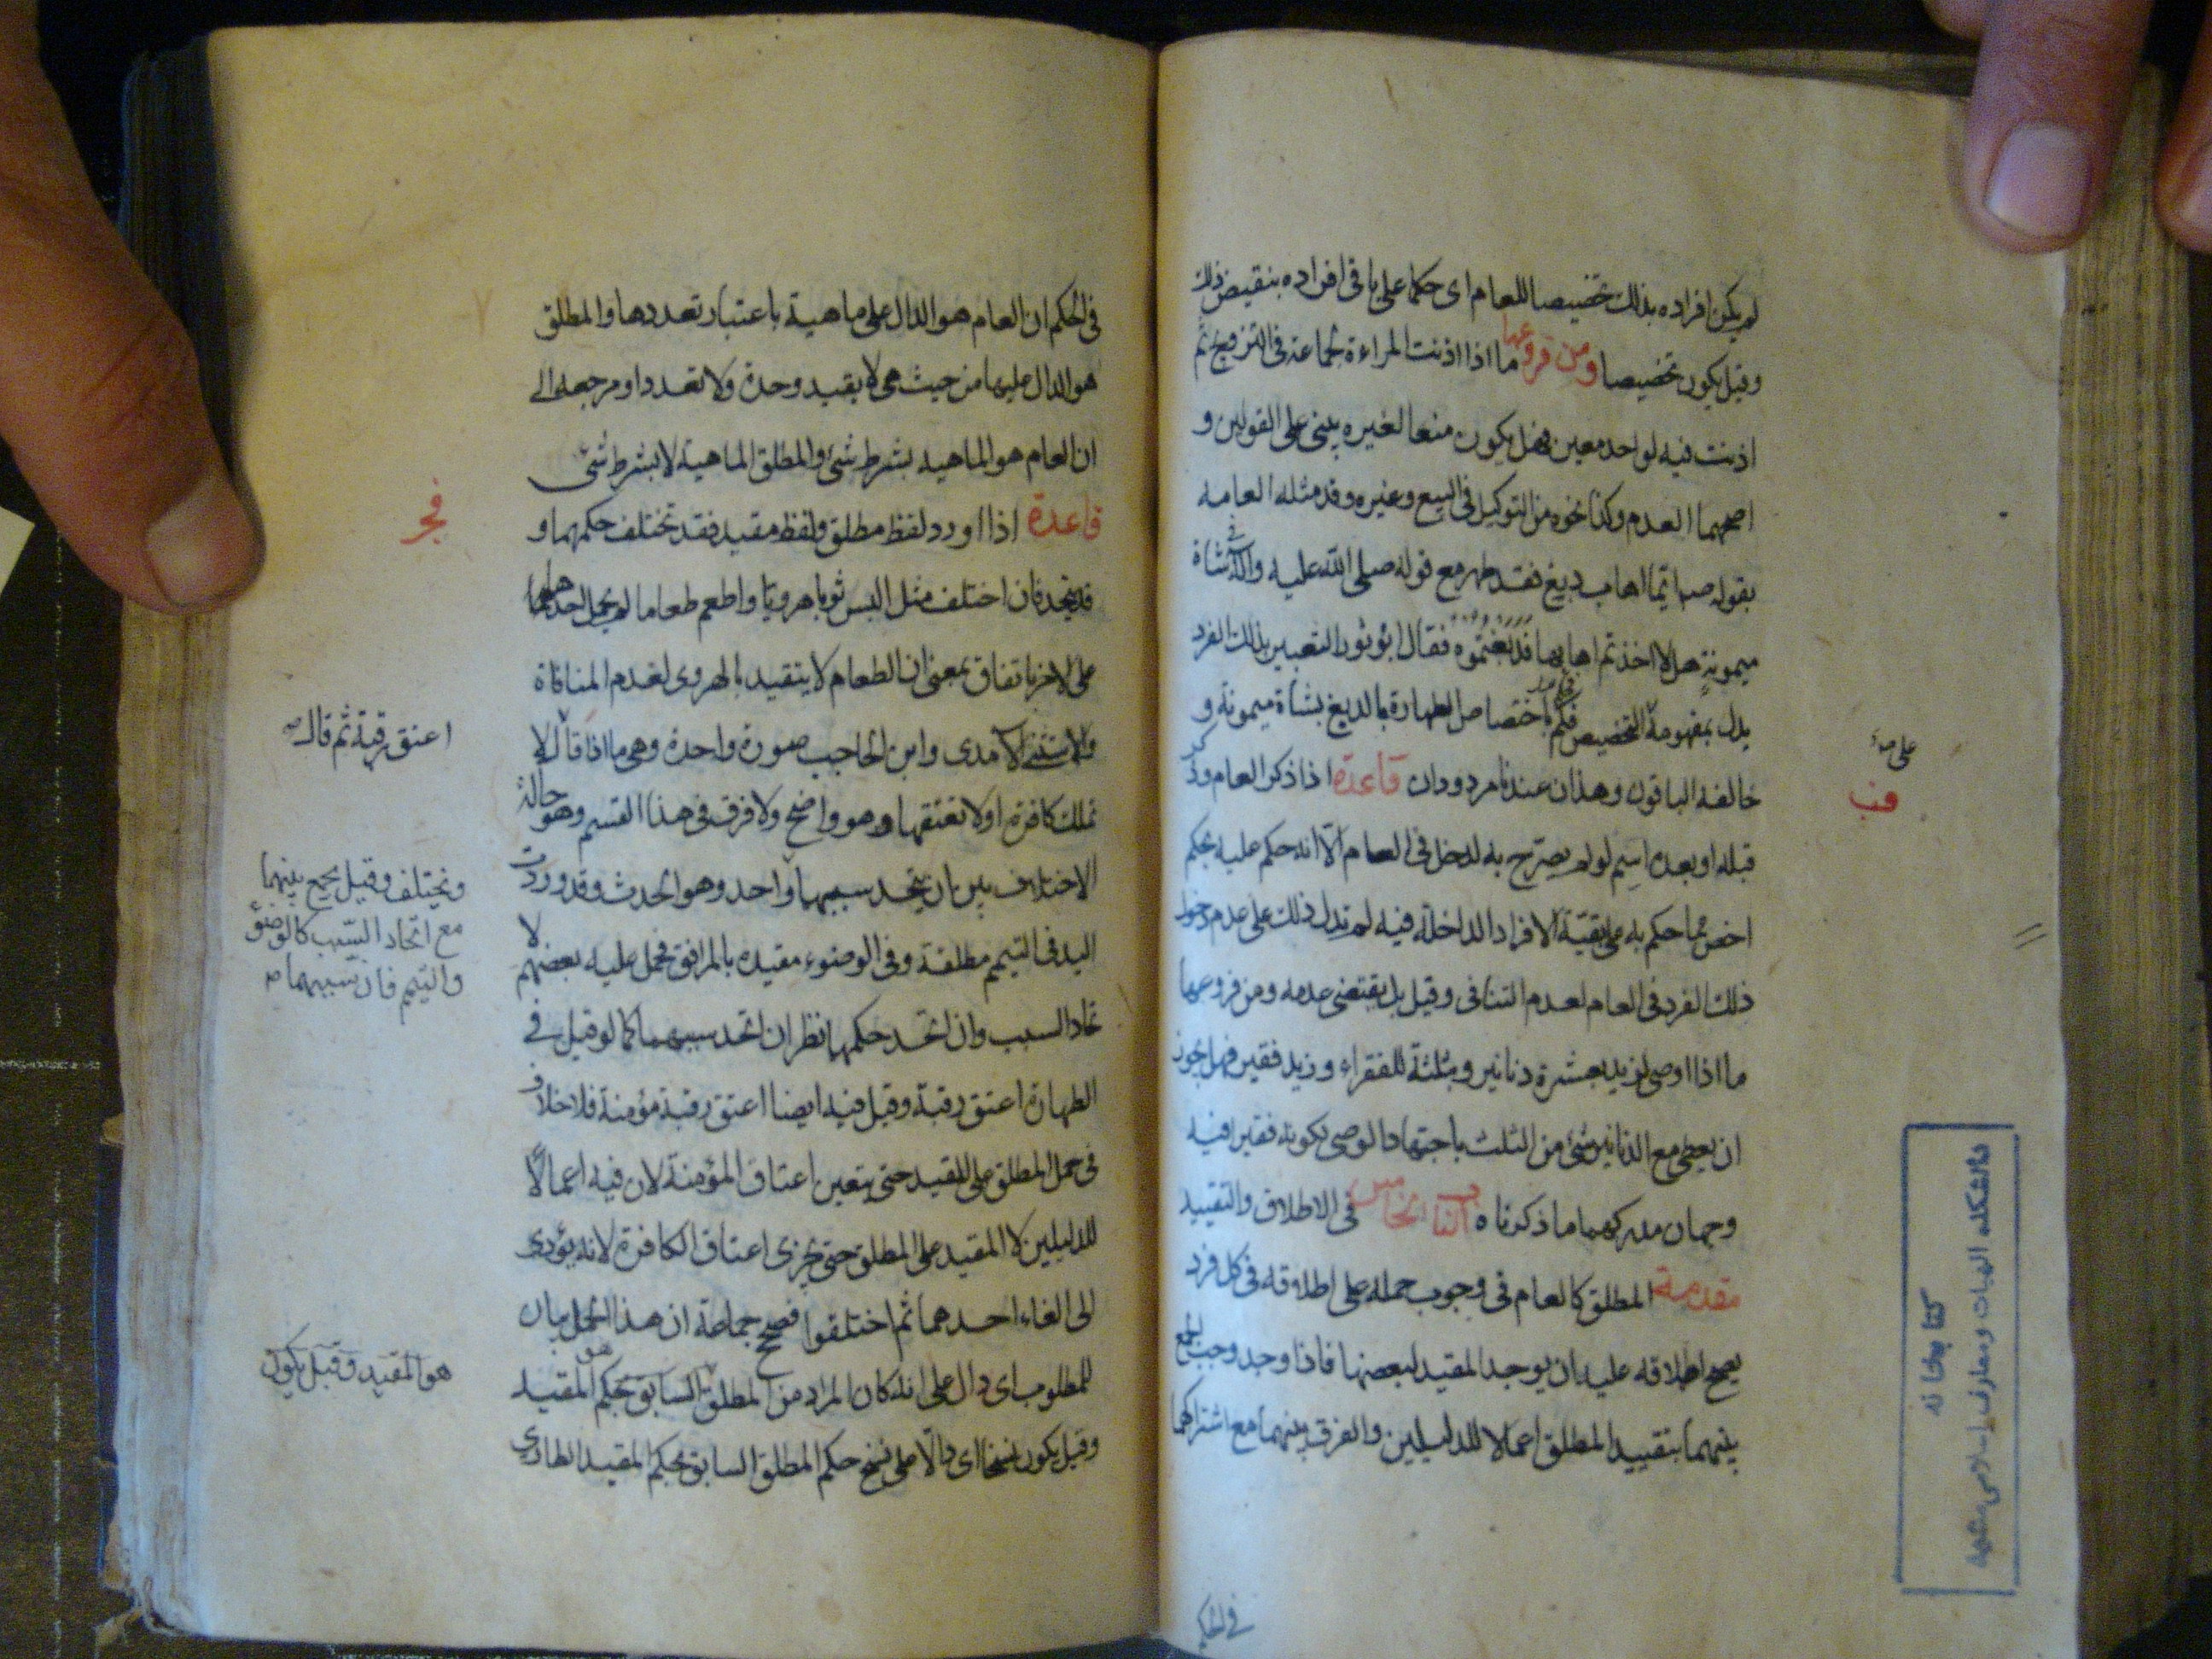 لم يكن افراده بذلك تخصيصا للعام اى حكما على باقى افراده بنقيض ذلك
وقيل يكون تخصيصا ومن فروعها ما اذا اذنت المراءة لجماعة فى التزويج ثم
اذنت فيه لواحد معين فهل يكون منعا لغيره يبنى على القولين و
اصحهما العدم وكذا نحوه من التوكيل فى البيع وغيره وقد مثله العامه
بقوله ص ايما اهاب دبغ فقد طهر مع قوله صلى الله عليه واله فى شاة
ميمونة هلا اخذتم اهابها فدبغتموه فقال ابو ثور التعبير بذلك الفرد
يدل بمفهومه التخصيص فحكم باختصاص الطهارة بالدبغ بشاة ميمونة و
خالفه الباقون وهذان عندنا مردودان قاعدة اذا ذكر العام وذكر
على ص
قبله او بعده اسم لو لم يصرح به لدخل فى العام الا انه حكم عليه بحكم
فب
اخص مما حكم به على بقية الافراد الداخلة فيه لم تدل ذلك على عدم دخول
ذلك الفرد فى العام لعدم التنافى وقيل بل يقتضى عدمه ومن فروعها
ما اذا اوصى لزيد بعشرة دنانير وبثلثة للفقراء وزيد فقير فهل يجوز
ان يعطى مع الدنانير شئ من الثلث باجتهاد الوصى لكونه فقيرا فيه
وجهان مدركهما ما ذكرناه الباب الخامس فى الاطلاق والتقييد
مقدمة المطلق كالعام فى وجوب حمله على اطلاقه فى كل فرد
يصح اطلاقه عليه ان يوجد المقيد لبعضها فاذا وجد وجب الجمع
بينهما بتقييد المطلق اعمالا للدليلين والفرق بينهما مع اشتراكهما
فى الحكم
كتابخانه
دانشكده الهيات ومعارف اسلامى مشهد
فى الحكم ان العام هو الدال على ماهية باعتبار تعددها والمطلق
هو الدال عليها من حيث هى لا بقيد وحدة ولا تعدد او مرجعه الى
ان العام هو الماهيه بشرط شئ والمطلق الماهية لا بشرط شئ
قاعدة اذا اورد لفظ مطلق ولفظ مقيد فقد تختلف حكمهما و
فجر
قد يتحد فان اختلف مثل البس ثوبا هرويا واطعم طعاما لم يحمل احدهما
على الاخر باتفاق بمعنى ان الطعام لا يتقيد بالهروى لعدم المنافاة
واستثنى الامدى وابن الحاجب صورة واحدة وهى ما اذا قال لا
اعتق رقبة ثم قال ص
تملك كافرة او لا تعتقها وهو واضح ولا فرق فى هذا القسم وهو حالة
الاختلاف بين ان يتحد سببهما واحد وهو الحدث وقد وردت
ويختلف وقيل يجمع بينهما
مع اتحاد السبب كالوضوء
والتيمم فان سببهما ص
اليد فى التيمم مطلقة وفى الوضوء مقيده بالمرافق فحمل عليه بعضهم لا
تحاد السبب وان اتحد حكمهما نظر ان اتحد سببهما كما لو قيل فى
الظهارة اعتق رقبة وقيل فيه ايضا اعتق رقبة مؤمنة فلا خلاف
فى حمل المطلق على المقيد حتى يتعين اعتاق المؤمنة لان فيه اعمالا
للدليلين لا المقيد على المطلق حتى يجزى اعتاق الكافرة لانه يؤدى
الى الغاء احدهما ثم اختلفوا فصحح جماعة ان هذا الحمل بيان
للمطلوب اى دال على انه كان المراد من المطلق السابق بحكم المقيد
هو المقيد وقيل يكون
وقيل يكون نسخا اى دالا على نسخ حكم المطلق السابق بحكم المقيد الطارى